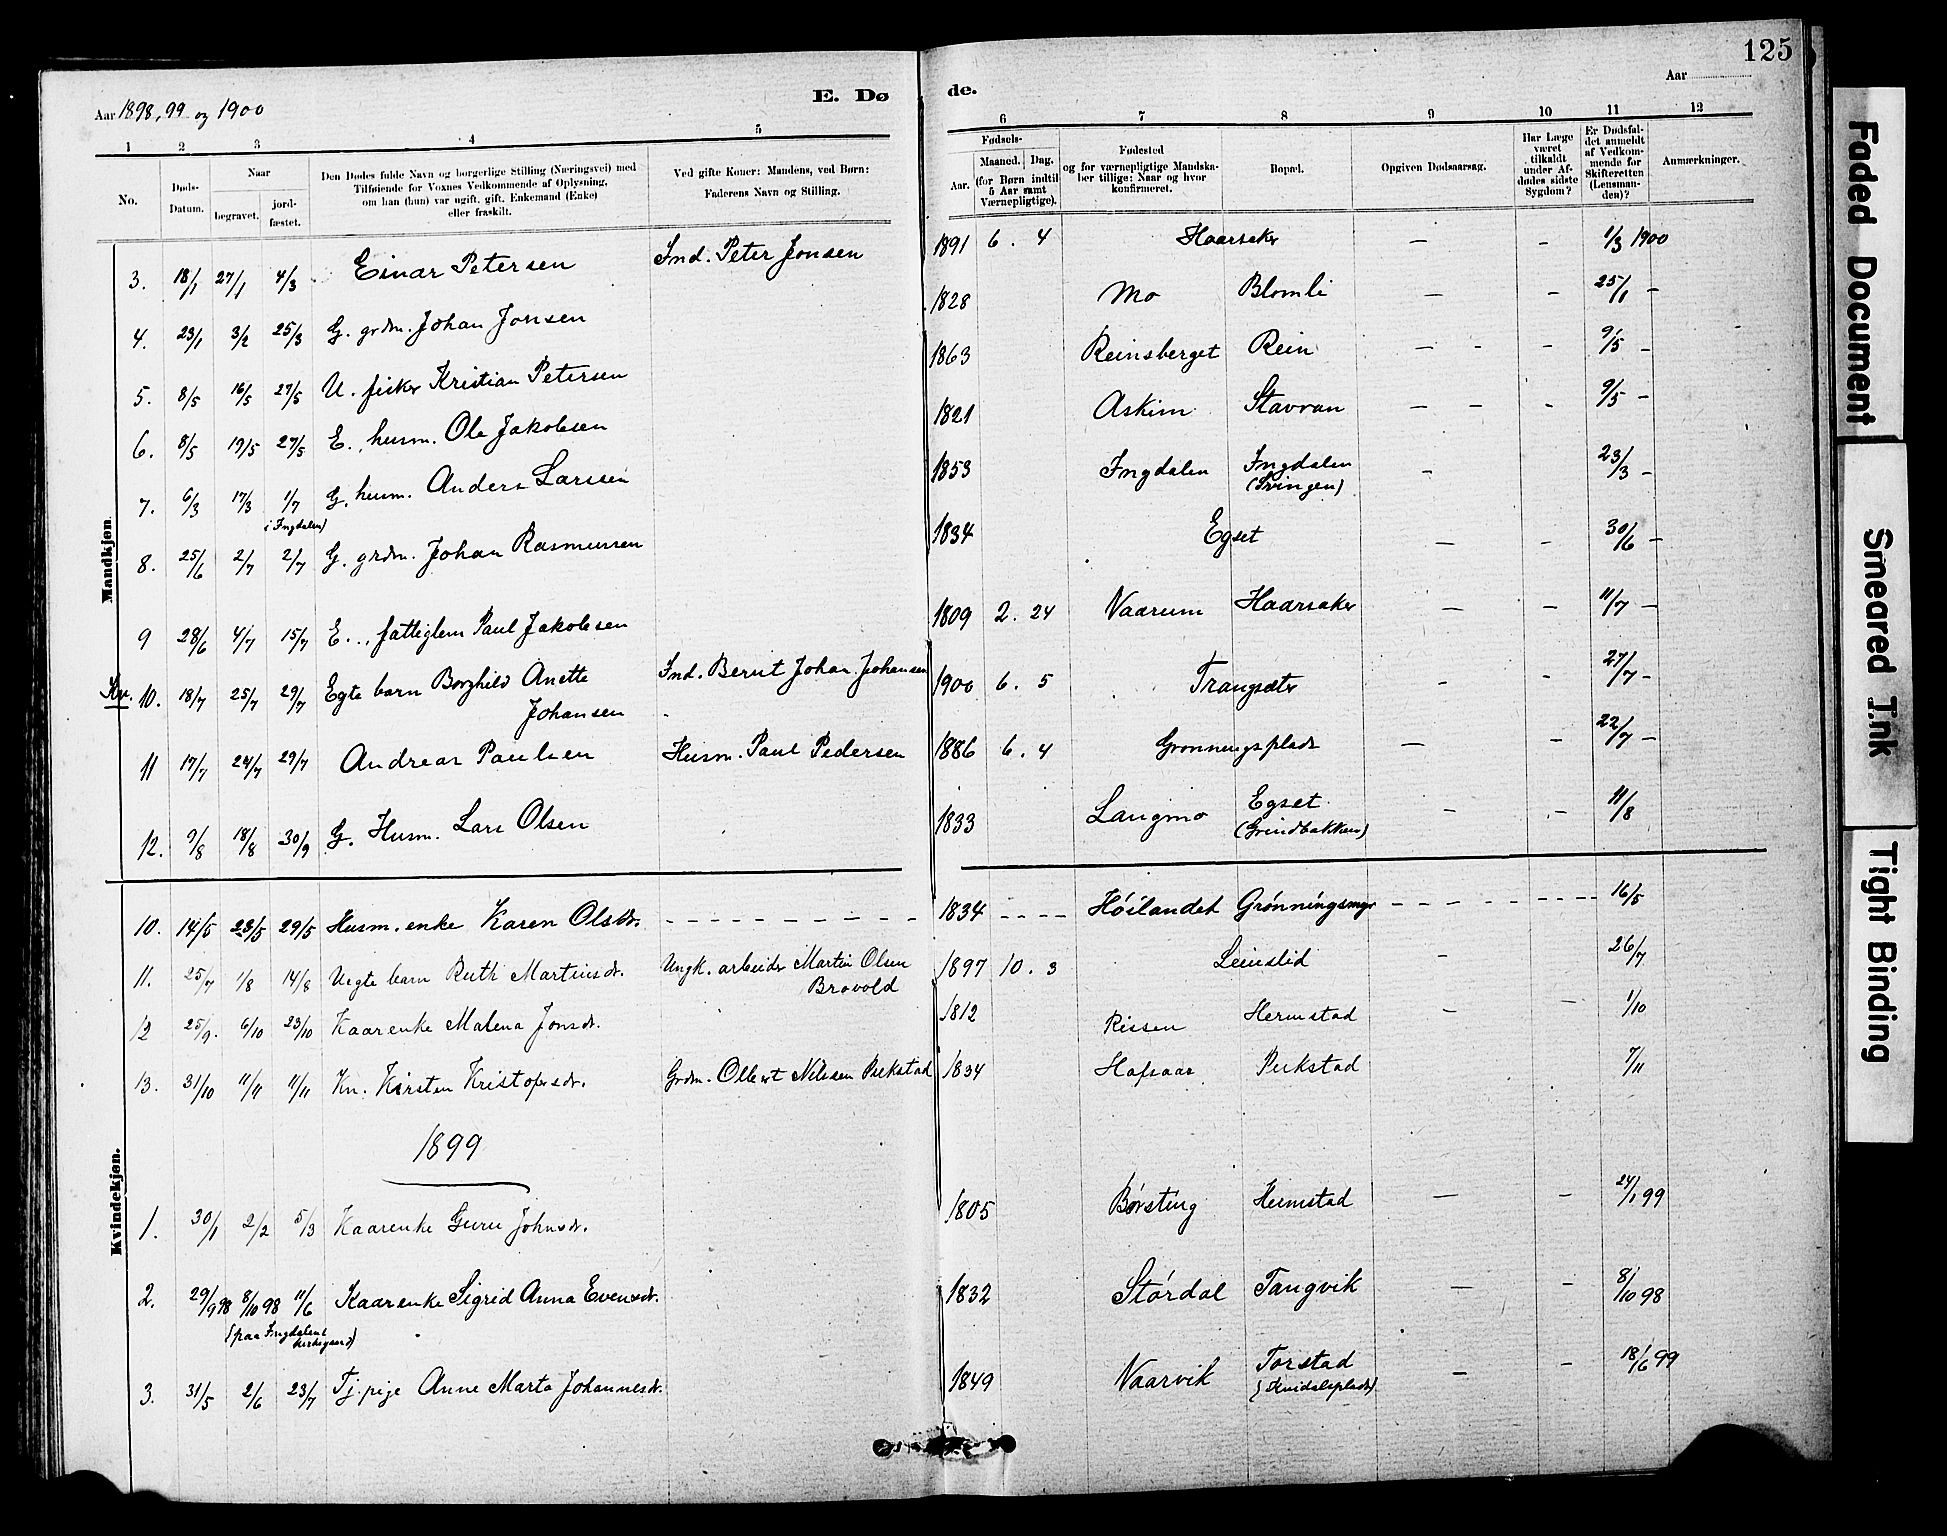 125
Aar 1898, 99 og 1900
E. Dø de.
Aar
1 2 3 4 5 6 7 8 9 10 11 12
No.
Døds-Datum.
Naar
begravet.
jord-fæstet.
Den Dødes fulde Navn og borgerlige Stilling (Næringsvei) med
Tilføiende for Voxnes Vedkommende af Oplysning,
om han (hun) var ugift, gift, Enkemand (Enke)
eller fraskilt.
Ved gifte Koner: Mandens, ved Børn:
Faderens Navn og Stilling.
Fødsels-
Aar.
Maaned. Dag.
(for Børn indtil
5 Aar samt
Værnepligtige).
Fødested
og for værnepligtige Mandska-
ber tillige: Naar og hvor
konfirmeret.
Bopæl.
Opgiven Dødsaarsag.
Har Læge
været
tilkaldt
under Af-
dødes sidste
Sygdom?
Er Dødsfal-
det anmeldt
af Vedkom-
mende for
Skifteretten
(Lensman-
den)?
Anmærkninger.
Mandkjøn.
3. 18/1 27/1 4/3 Einar Petersen Ind. Peter Jonsen 1891 6. 4 Haarsaker – – 1/3 1900
4. 23/1 3/2 25/3 G. grdm. Johan Jonsen 1828 Mo Blomli – – 25/1 –
5. 8/5 16/5 27/5 U. fisker Kristian Petersen 1863 Reinsberget Rein – - – 9/5 –
6. 8/5 19/5 27/5 E., husm. Ole Jakobsen 1821 Askim Stavran – – - 9/5 –
7. 6/3 17/3 1/7 G. husm. Anders Larsen 1853 Ingdalen Ingdalen – 23/3 –
(i Ingdalen) (Svingen)
8. 25/6 2/7 2/7 G. grdm. Johan Rasmussen 1834 Egset – – 30/6 –
9 28/6 4/7 15/7 E.., fattiglem Paul Jakobsen 1809 2. 24 Vaarum Haarsaker – – 11/7 –
Kv. 10. 18/7 25/7 29/7 Egte barn Borghild Anette Ind. Bernt Johan Johansen 1900 6. 5 Trangsæter – – 27/7 –
Johansen
11 17/7 24/7 29/7 Andreas Paulsen Husm. Paul Pedersen 1886 6. 4 Grønningsplads – – 22/7 –
12. 9/8 18/8 30/9 G. Husm. Lars Olsen 1833 Langmo Egset – – 11/8
(Grindbakken)
Kvindekjøn.
10. 14/5 23/5 29/5 Husm. enke Karen Olsdr. - - - - - - - - - 1834 - - - - Høilandet Grønningsmyr - - - - - - - - - 16/5
11. 25/7 1/8 14/8 Uegte barn Ruth Martinsdr. Ungk. arbeider Martin Olsen 1897 10. 3 Leinslid – 26/7
Brovold
12 25/9. 6/10 23/10 Kaarenke Malena Jonsdr. 1812 Rissen Hermstad – – 1/10
13. 31/10 11/11 11/11 Kn. Kirsten Kristofersdr. Grdm. Olbert Nilssen Pukstad 1834 Hafsaas Pukstad 7/11
1899
1. 30/1 2/2 5/3 Kaarenke Guru Johnsdr. 1805 Børsting Heimstad – – 24/1 99
2. 29/9 98 8/10 98 11/6 Kaarenke Sigrid Anna Evensdr. 1832 Størdal Tangvik – – 8/10 98
(paa Ingdalens
kirkegaard)
3. 31/5 2/6 23/7 Tj. pige Anne Marta Johannesdr. 1849 Vaarvik Torstad – – 18/6 99
Faded Document
Smeared Ink
Tight Binding